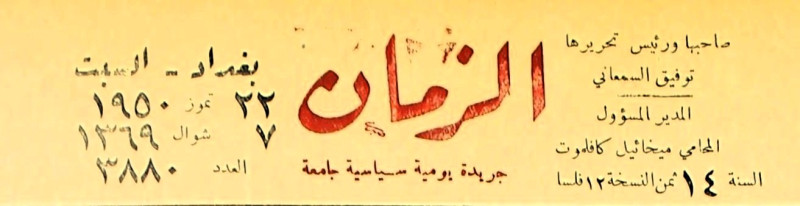 صاحبها ورئيس تحريرها
توفيق السمعاني
المدير المسؤول
المحامي ميخائيل كافلموت
السنة ١٤ ثمن النسخة ١٢ فلسا
الزمان
جريدة يومية سياسية جامعة
بغداد - السبت
٢٢ تموز ١٩٥٠
٧ شوال ١٣٦٩
العدد ٣٨٨٠